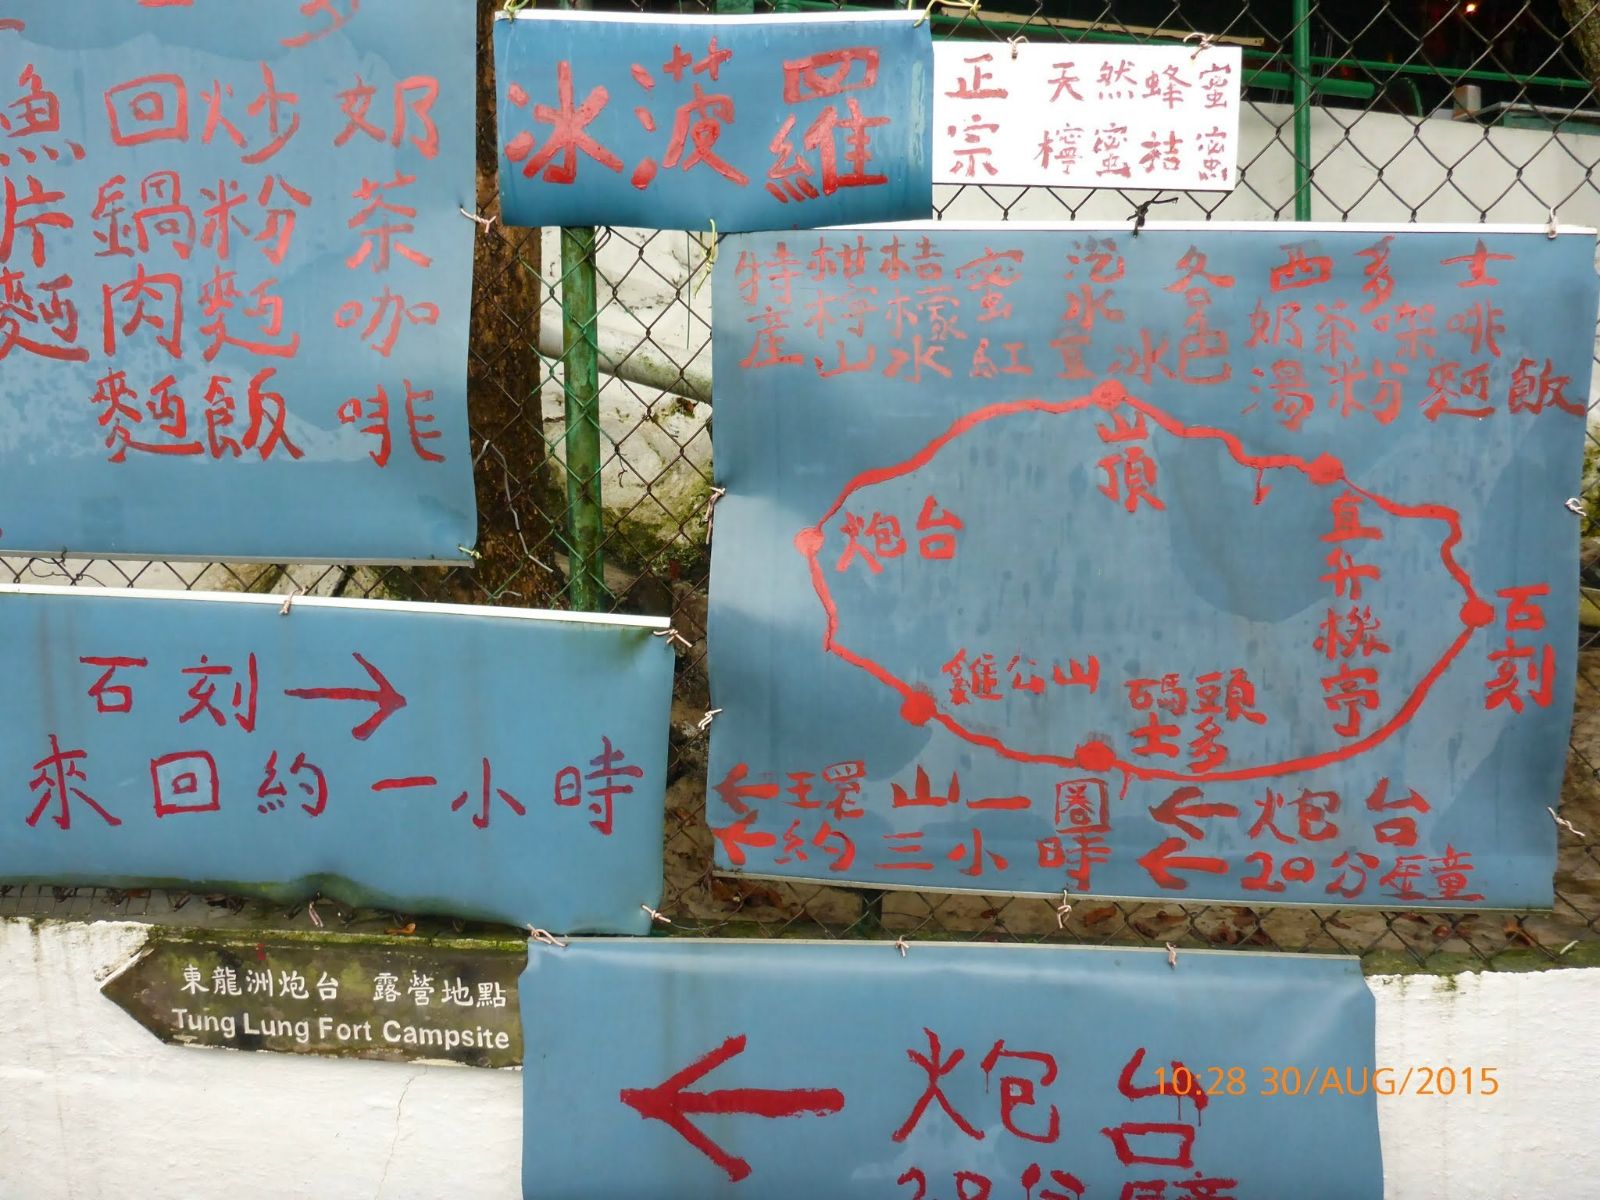 冰菠羅
正宗
天然蜂蜜
檸蜜桔蜜
魚片麵
回鍋肉麵
炒粉麵飯
奶茶咖啡
特產
山水
蜜紅
汽水
冰
西多士
奶茶啡
湯粉麵飯
山頂
炮台
直升機亭
石刻
雞公山
碼頭
士多
← 環山一圈
← 約三小時
← 炮台
← 20分鐘
石刻 →
來回約一小時
東龍洲炮台 露營地點
Tung Lung Fort Campsite
← 炮台
10:28 30/AUG/2015